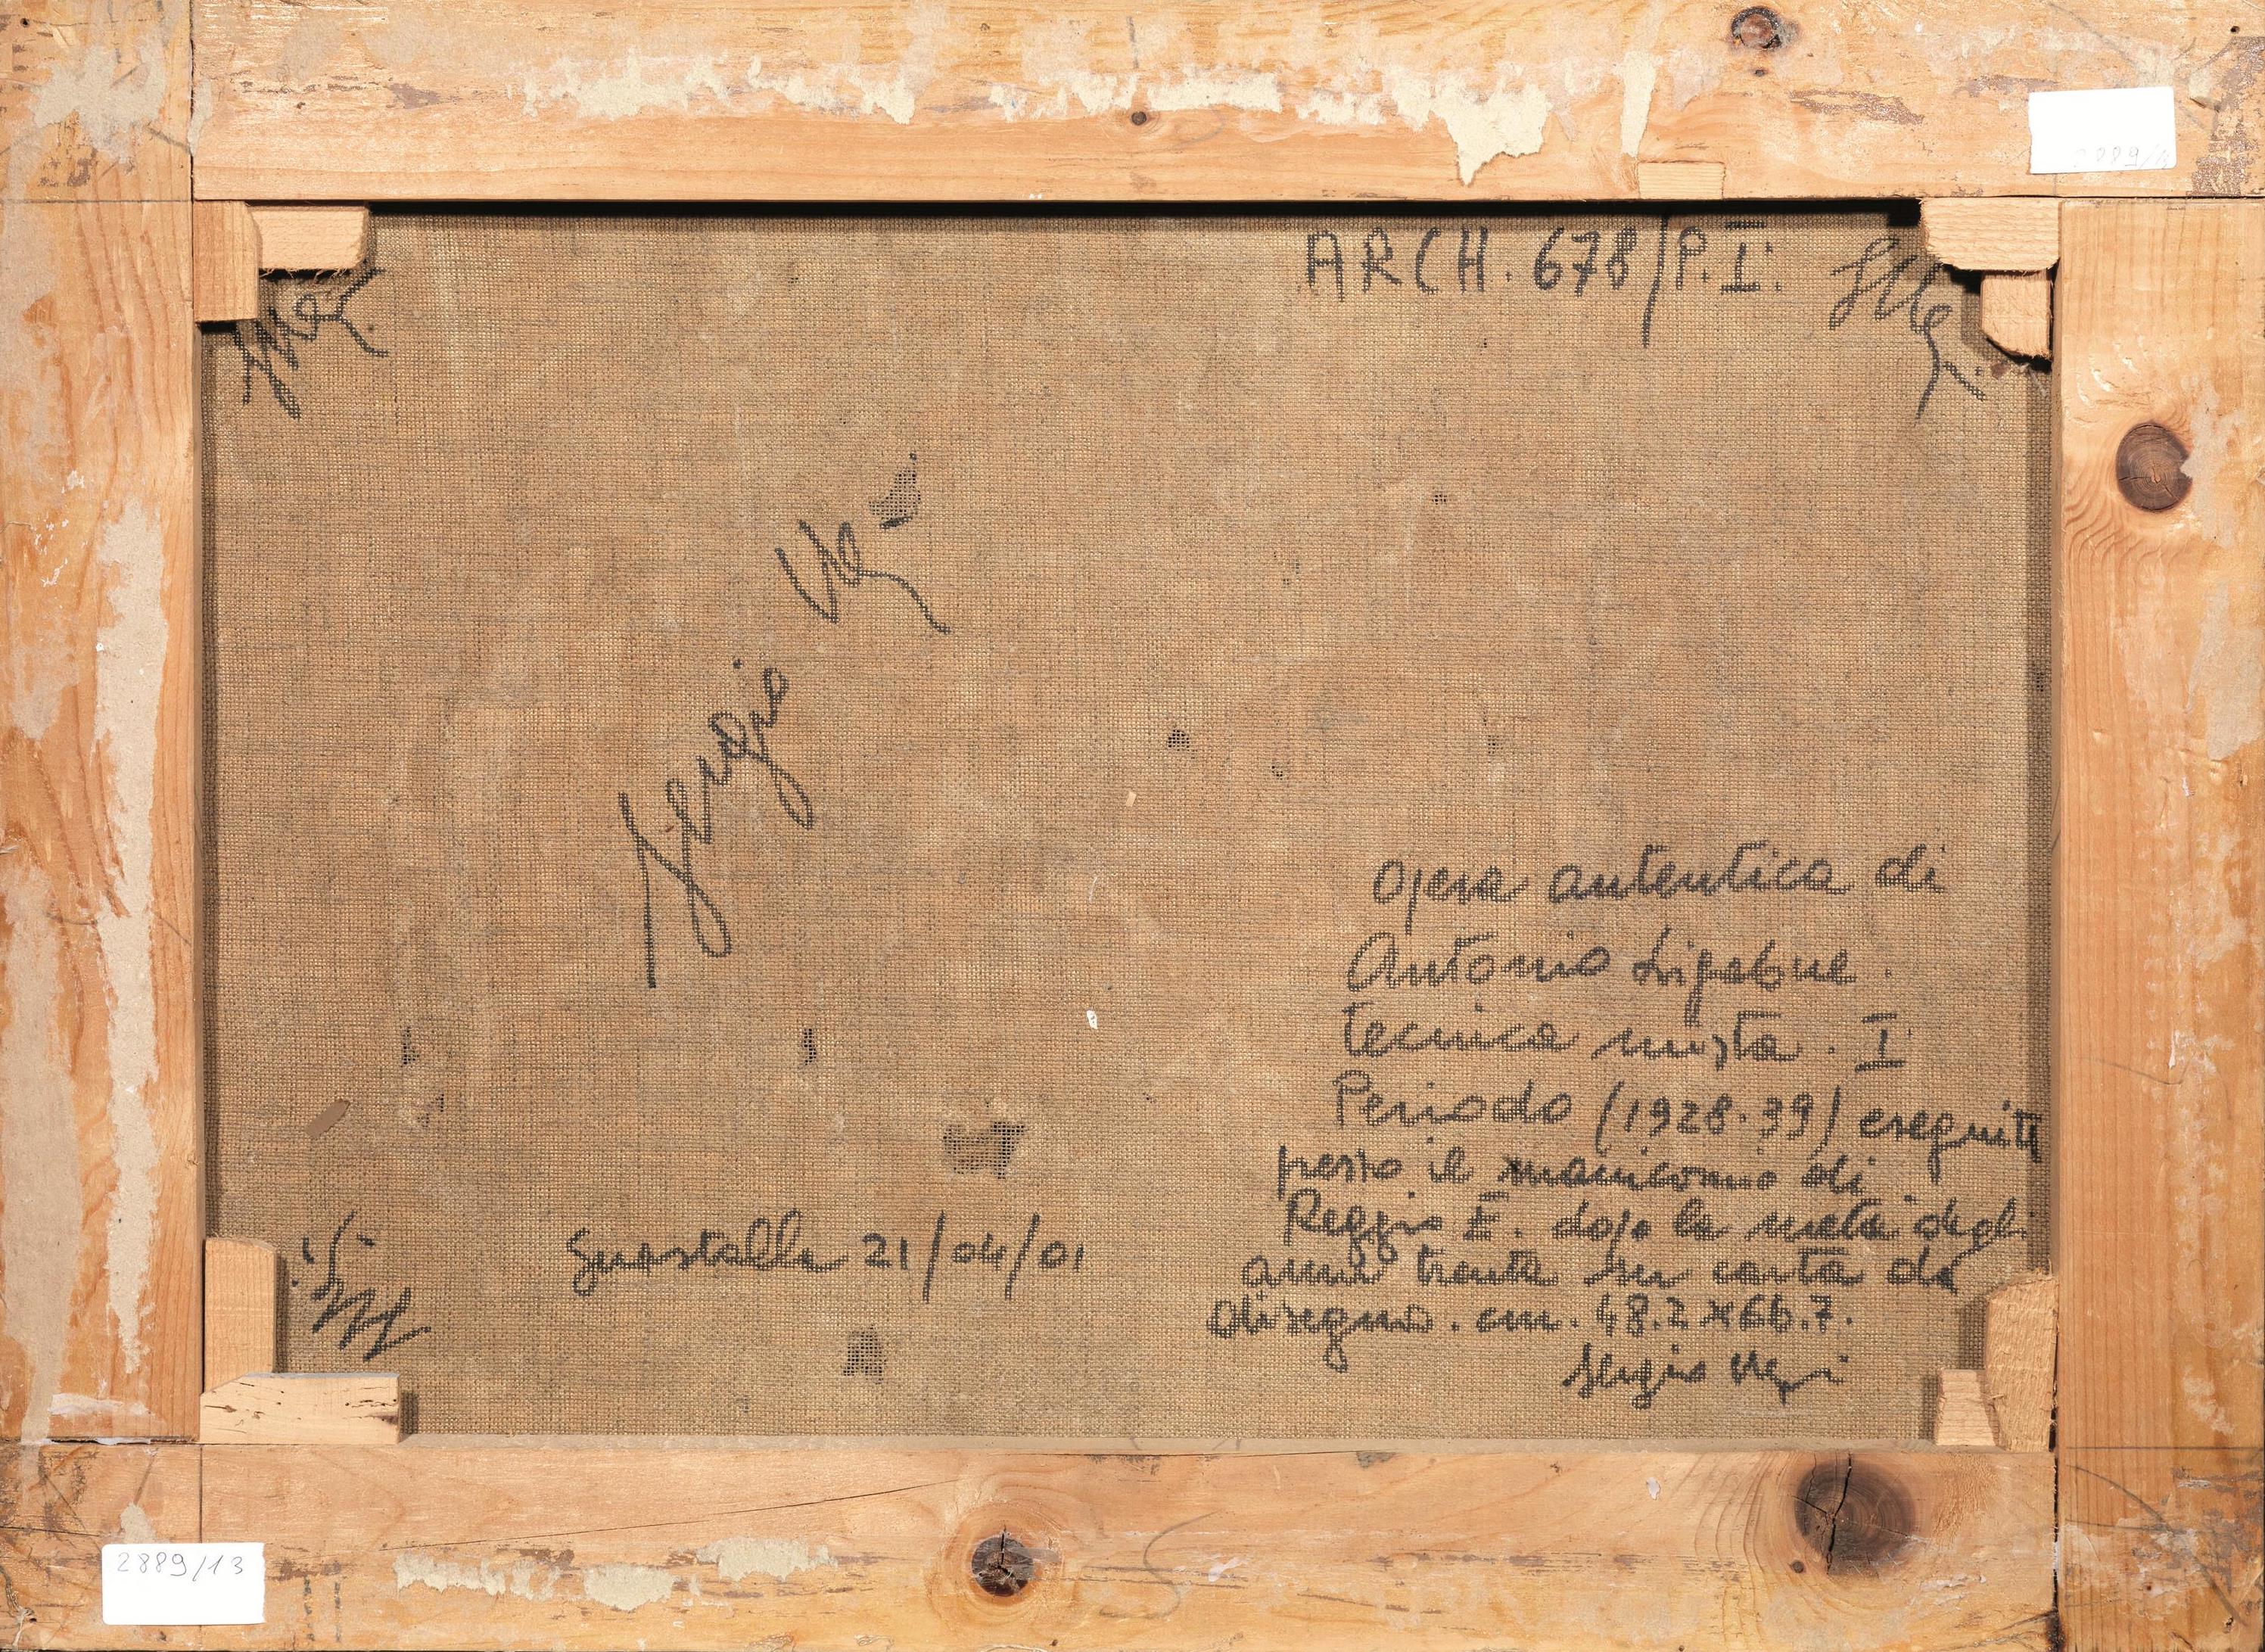 2889/13
ARCH. 678/P.I:
Sergio Ve
Opera autentica di
Antonio Ligabue.
tecnica mista. I:
Periodo (1928.39) eseguita
presso il manicomio di
Reggio E. dopo la metà degli
anni trenta su carta da
disegno. cm. 48.2 x 66.7.
Sergio Negri
Guastalla 21/04/01
2889/13